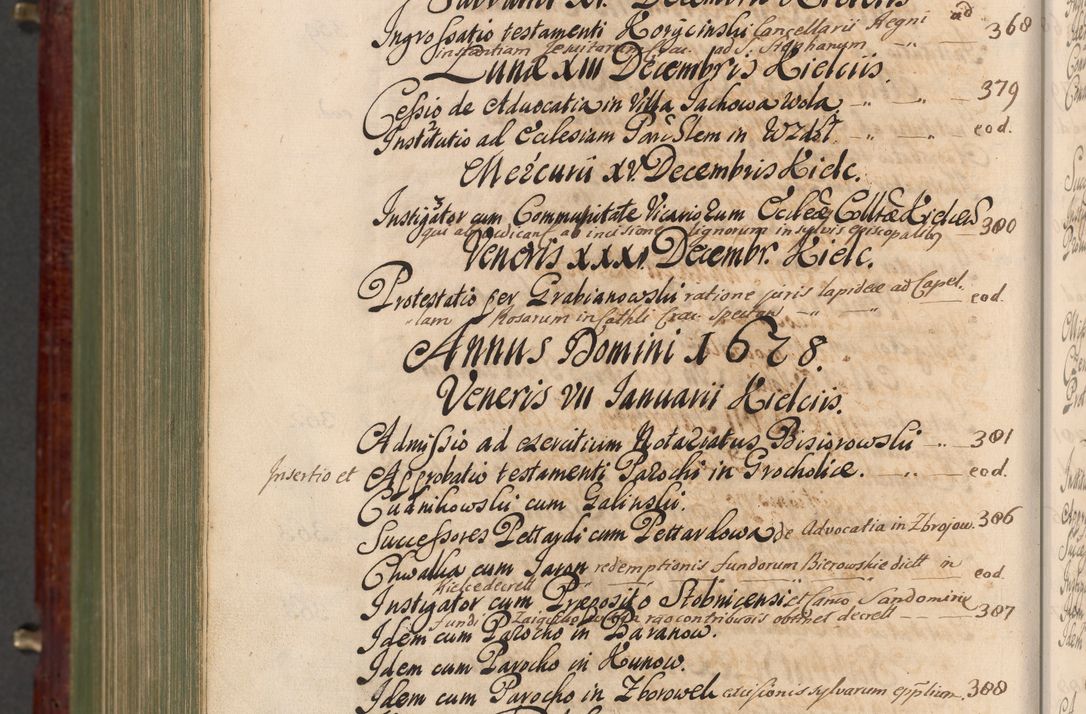 Sabbathi XI. Decembris Kielciis
Ingrossatio testamenti Korycinski Cancellarii Regni ad 368
instantiam Jesuitarum Crac. ad S. Stephanum
Lunæ XIII Decembris Kielciis.
Cessio de Advocatia in Villa Jachowa Wola 379
Institutio ad Ecclesiam Parochlem in Wzdół eod.
Mercurii XV. Decembris Kielc.
Instigator cum Communitate Vicariorum Eccleæ Colltæ Kielcen 380
incisione lignorum in sylvis episcopalibus
Veneris XXXI. Decembr. Kielc.
Protestatio per Grabianowski ratione juris lapideæ ad Capel. eod.
lam Rosarum in Cathli Crac. spectan
Annus Domini 1678.
Veneris VII Januarii Kielciis.
Admissio ad exercitium Notariatus Bisiorowski 381
Insertio et Approbatio testamenti Parochi in Grocholice. eod.
Cudnikowski cum Galinski.
Successores Pettardi cum Pettardowa de Advocatia in Zbrojow. 386
Chwalka cum Jaron redemptionis fundorum Bierowskie dict in
Kielce decrett eod.
Instigator cum Præposito Stobnicensi et Canco Sandomirie
fundi contribuois obtinet decrett 387
Idem cum Parocho in Baranow.
Idem cum Parocho in Kunow.
Idem cum Parocho in Zborowek excisionis sylvarum epplium. 388